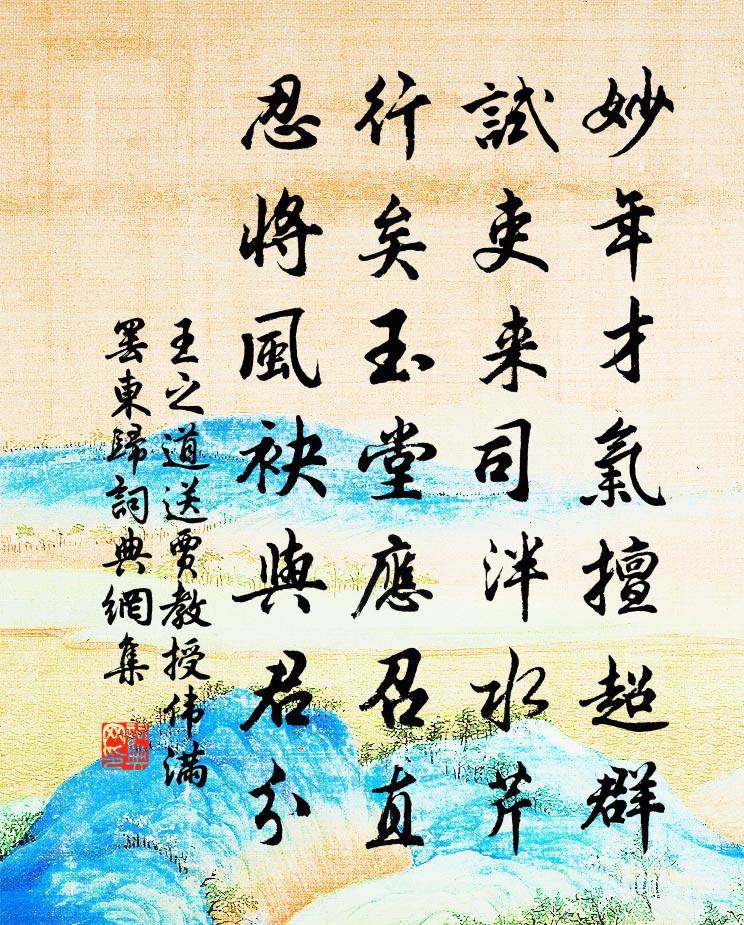 妙年才氣擅超群
試吏来司泮水芹
行矣玉堂應召直
忍將風袂與君分
王之道送贾教授伟满
罢東歸詞典網集